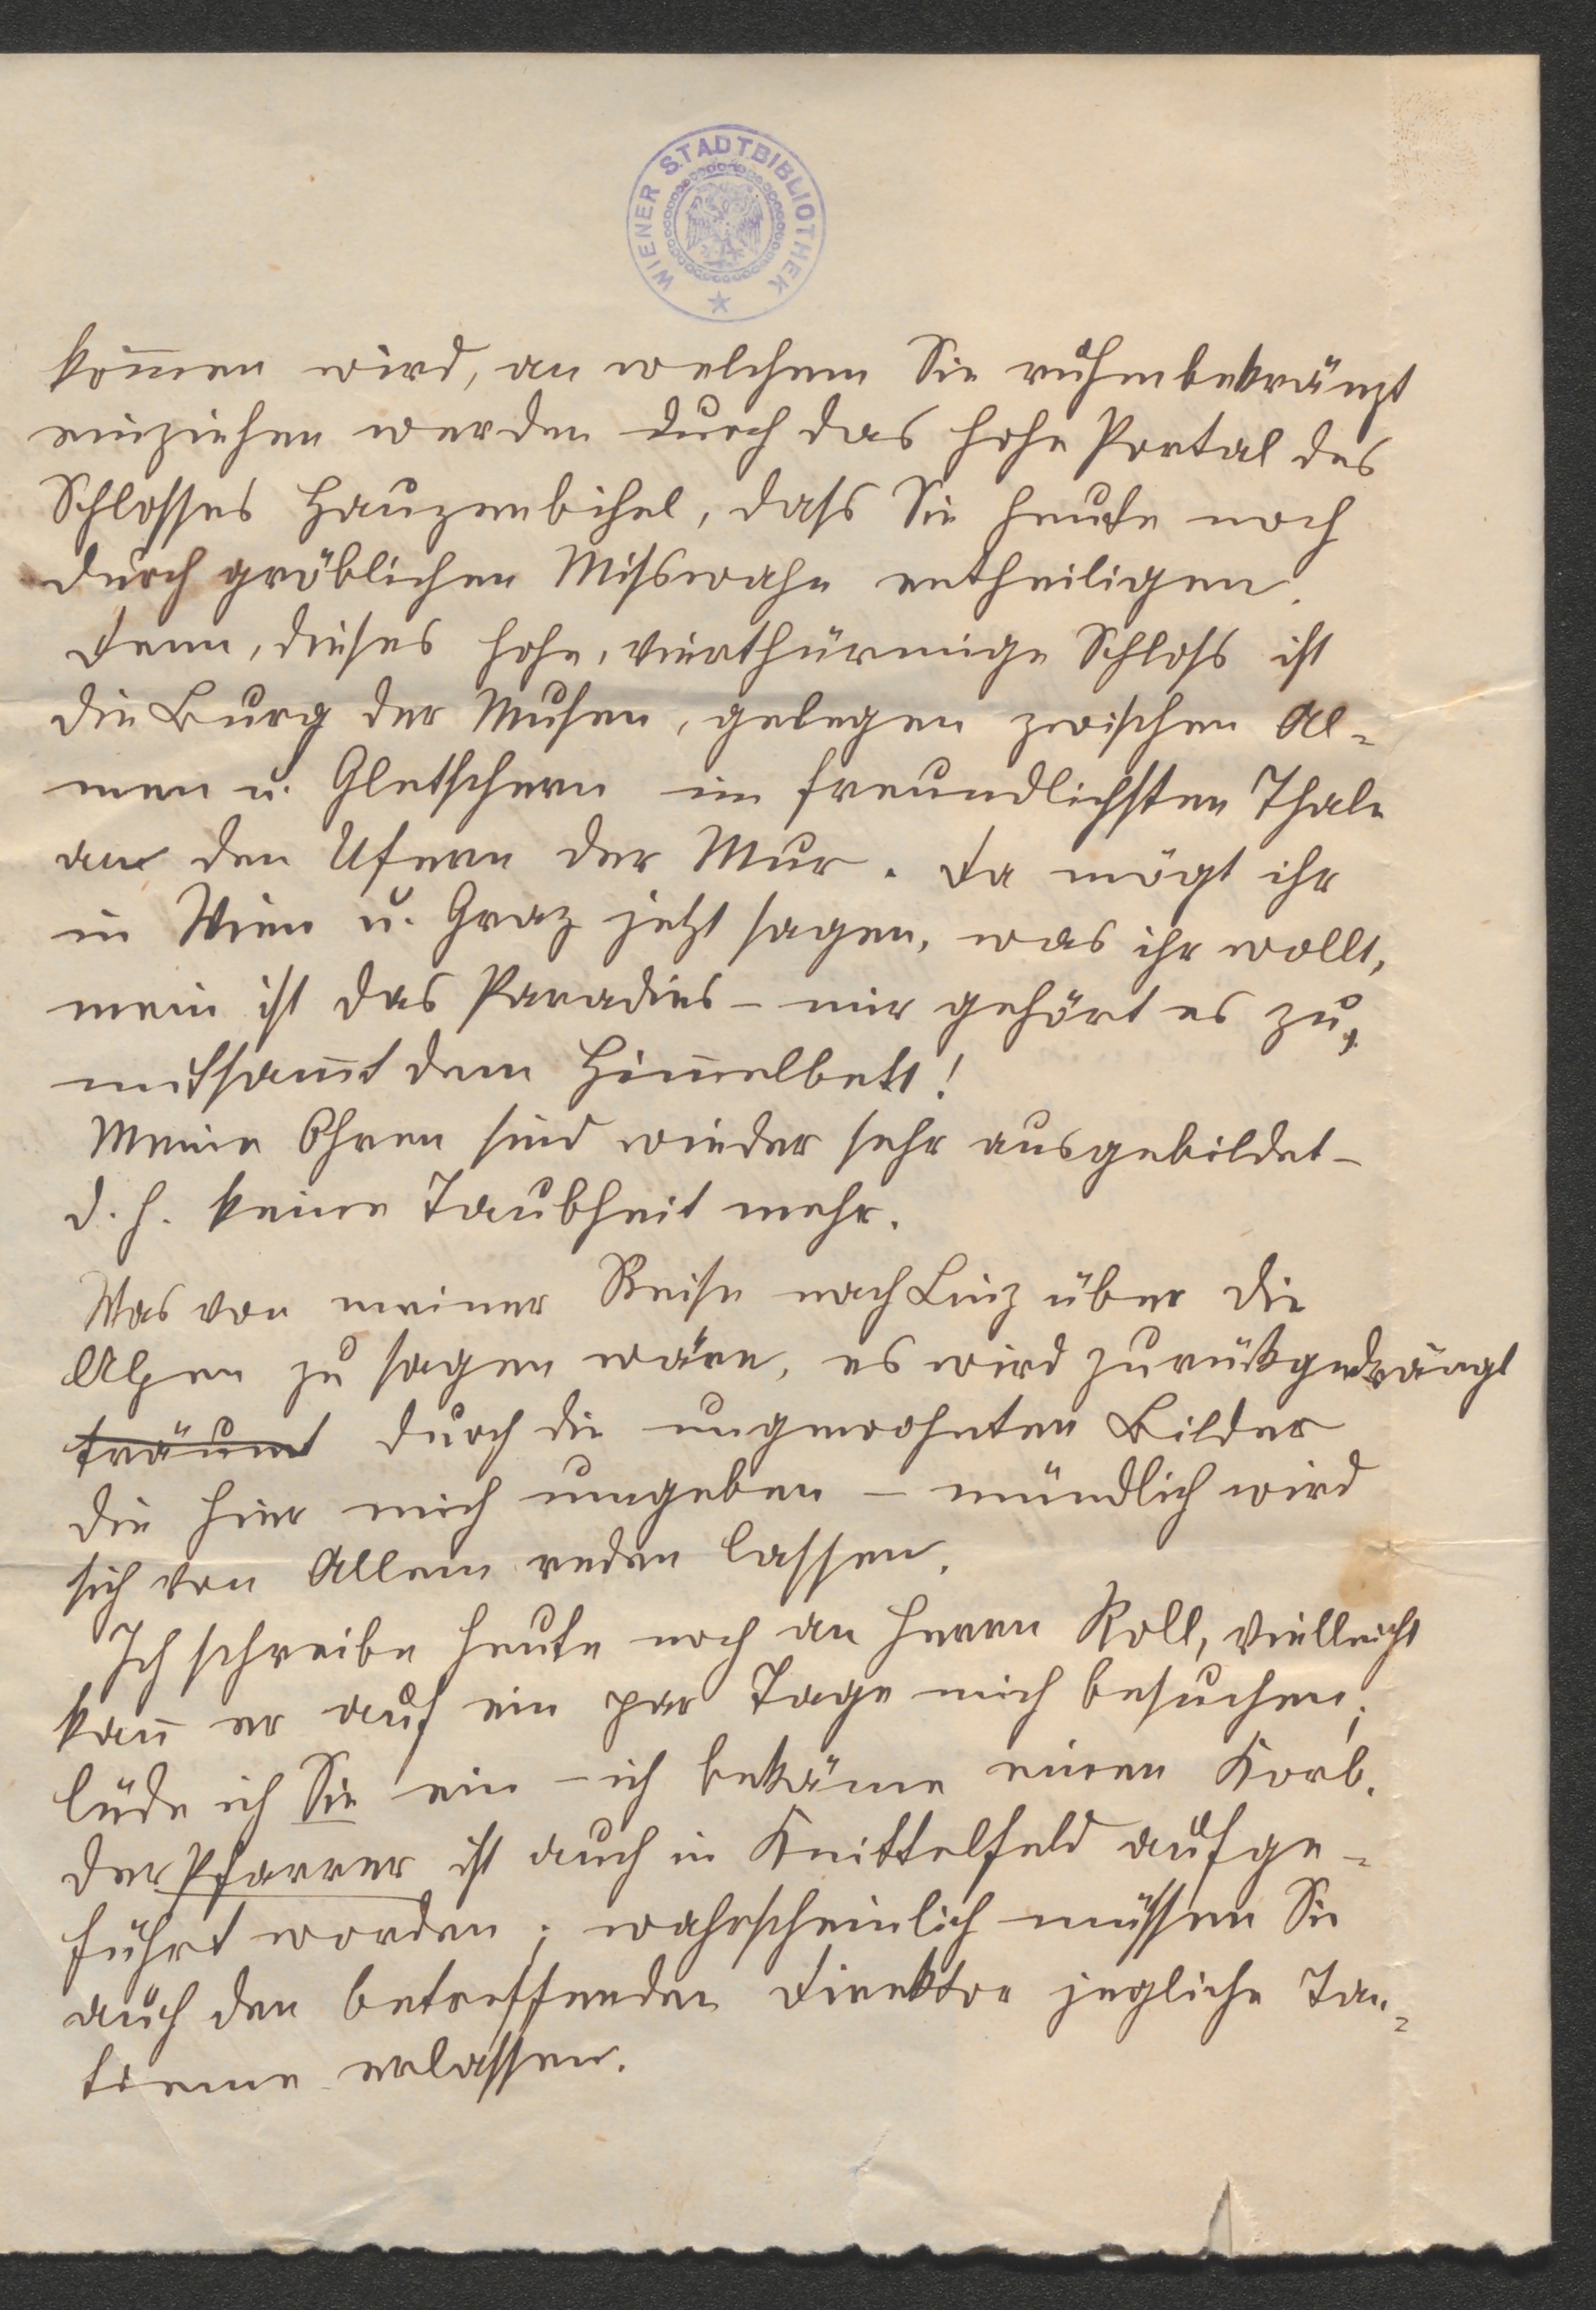 WIENER STADTBIBLIOTHEK
kom̅en wird, an welchem Sie ruhmbekränzt
einziehen werden durch das hohe Portal des
Schlosses Hauzenbichel, dass Sie heute noch
durch gröblichen Misswahn entheiligen.
Denn, dieses hohe, vierthürmige Schloss ist
die Burg der Musen, gelegen zwischen Al-
men u. Gletschern im freundlichsten Thale
an den Ufern der Mur. Da mögt ihr
in Wien u. Graz jetzt sagen, was ihr wollt,
mein ist das Paradies – mir gehört es zu,
mitsam̅t dem Him̅elbett!
Meine Ohren sind wieder sehr ausgebildet –
d. h. keine Taubheit mehr.
Was von meiner Reise nach Linz über die
Alpen zu sagen wäre, es wird zurückgedrängt
träumt durch die ungewohnten Bilder
die hier mich umgeben – mündlich wird
sich von Allem reden lassen.
Ich schreibe heute noch an Herrn Roll, vielleicht
kan̅ er auf ein par Tage mich besuchen;
lüde ich Sie ein – ich bekäme einen Korb.
Der Pfarrer ist auch in Knittelfeld aufge-
führt worden; wahrscheinlich müssen Sie
auch den betreffenden Direktor jegliche Tan-
tieme erlassen.